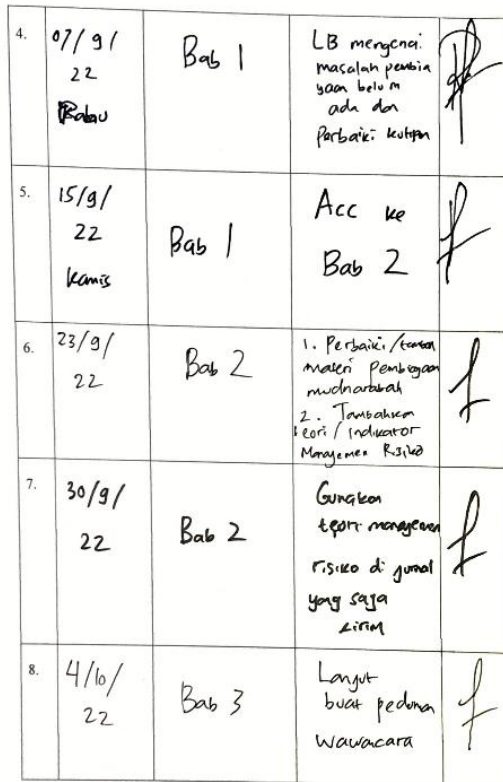 4.
07/9/
22
Rabu
Bab 1
LB mengenai
masalah pembia
yaan belum
ada dan
Perbaiki kutipan
5.
15/9/
22
Kamis
Bab 1
Acc ke
Bab 2
6.
23/9/
22
Bab 2
1. Perbaiki/
materi Pembiayaan
mudharabah
2. Tambahkan
teori/indikator
Manajemen Risiko
7.
30/9/
22
Bab 2
Gunakan
teori manajemen
risiko di jurnal
yang saya
kirim
8.
4/10/
22
Bab 3
Lanjut
buat pedoman
wawacara